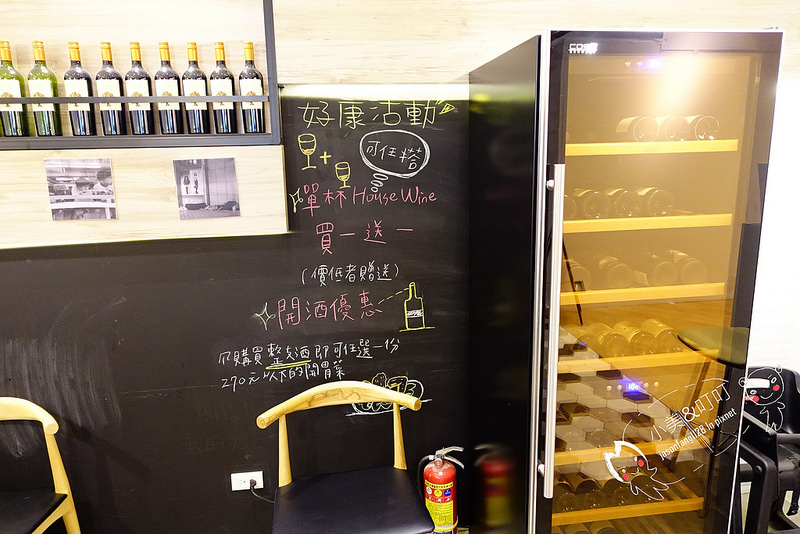 好康活動
可任搭
單杯 House Wine
買一送一
(價低者贈送)
開酒優惠
凡購買整支酒即可任選一份
270元以下的開胃菜
小美&叮叮
jasonfang128 in pixnet